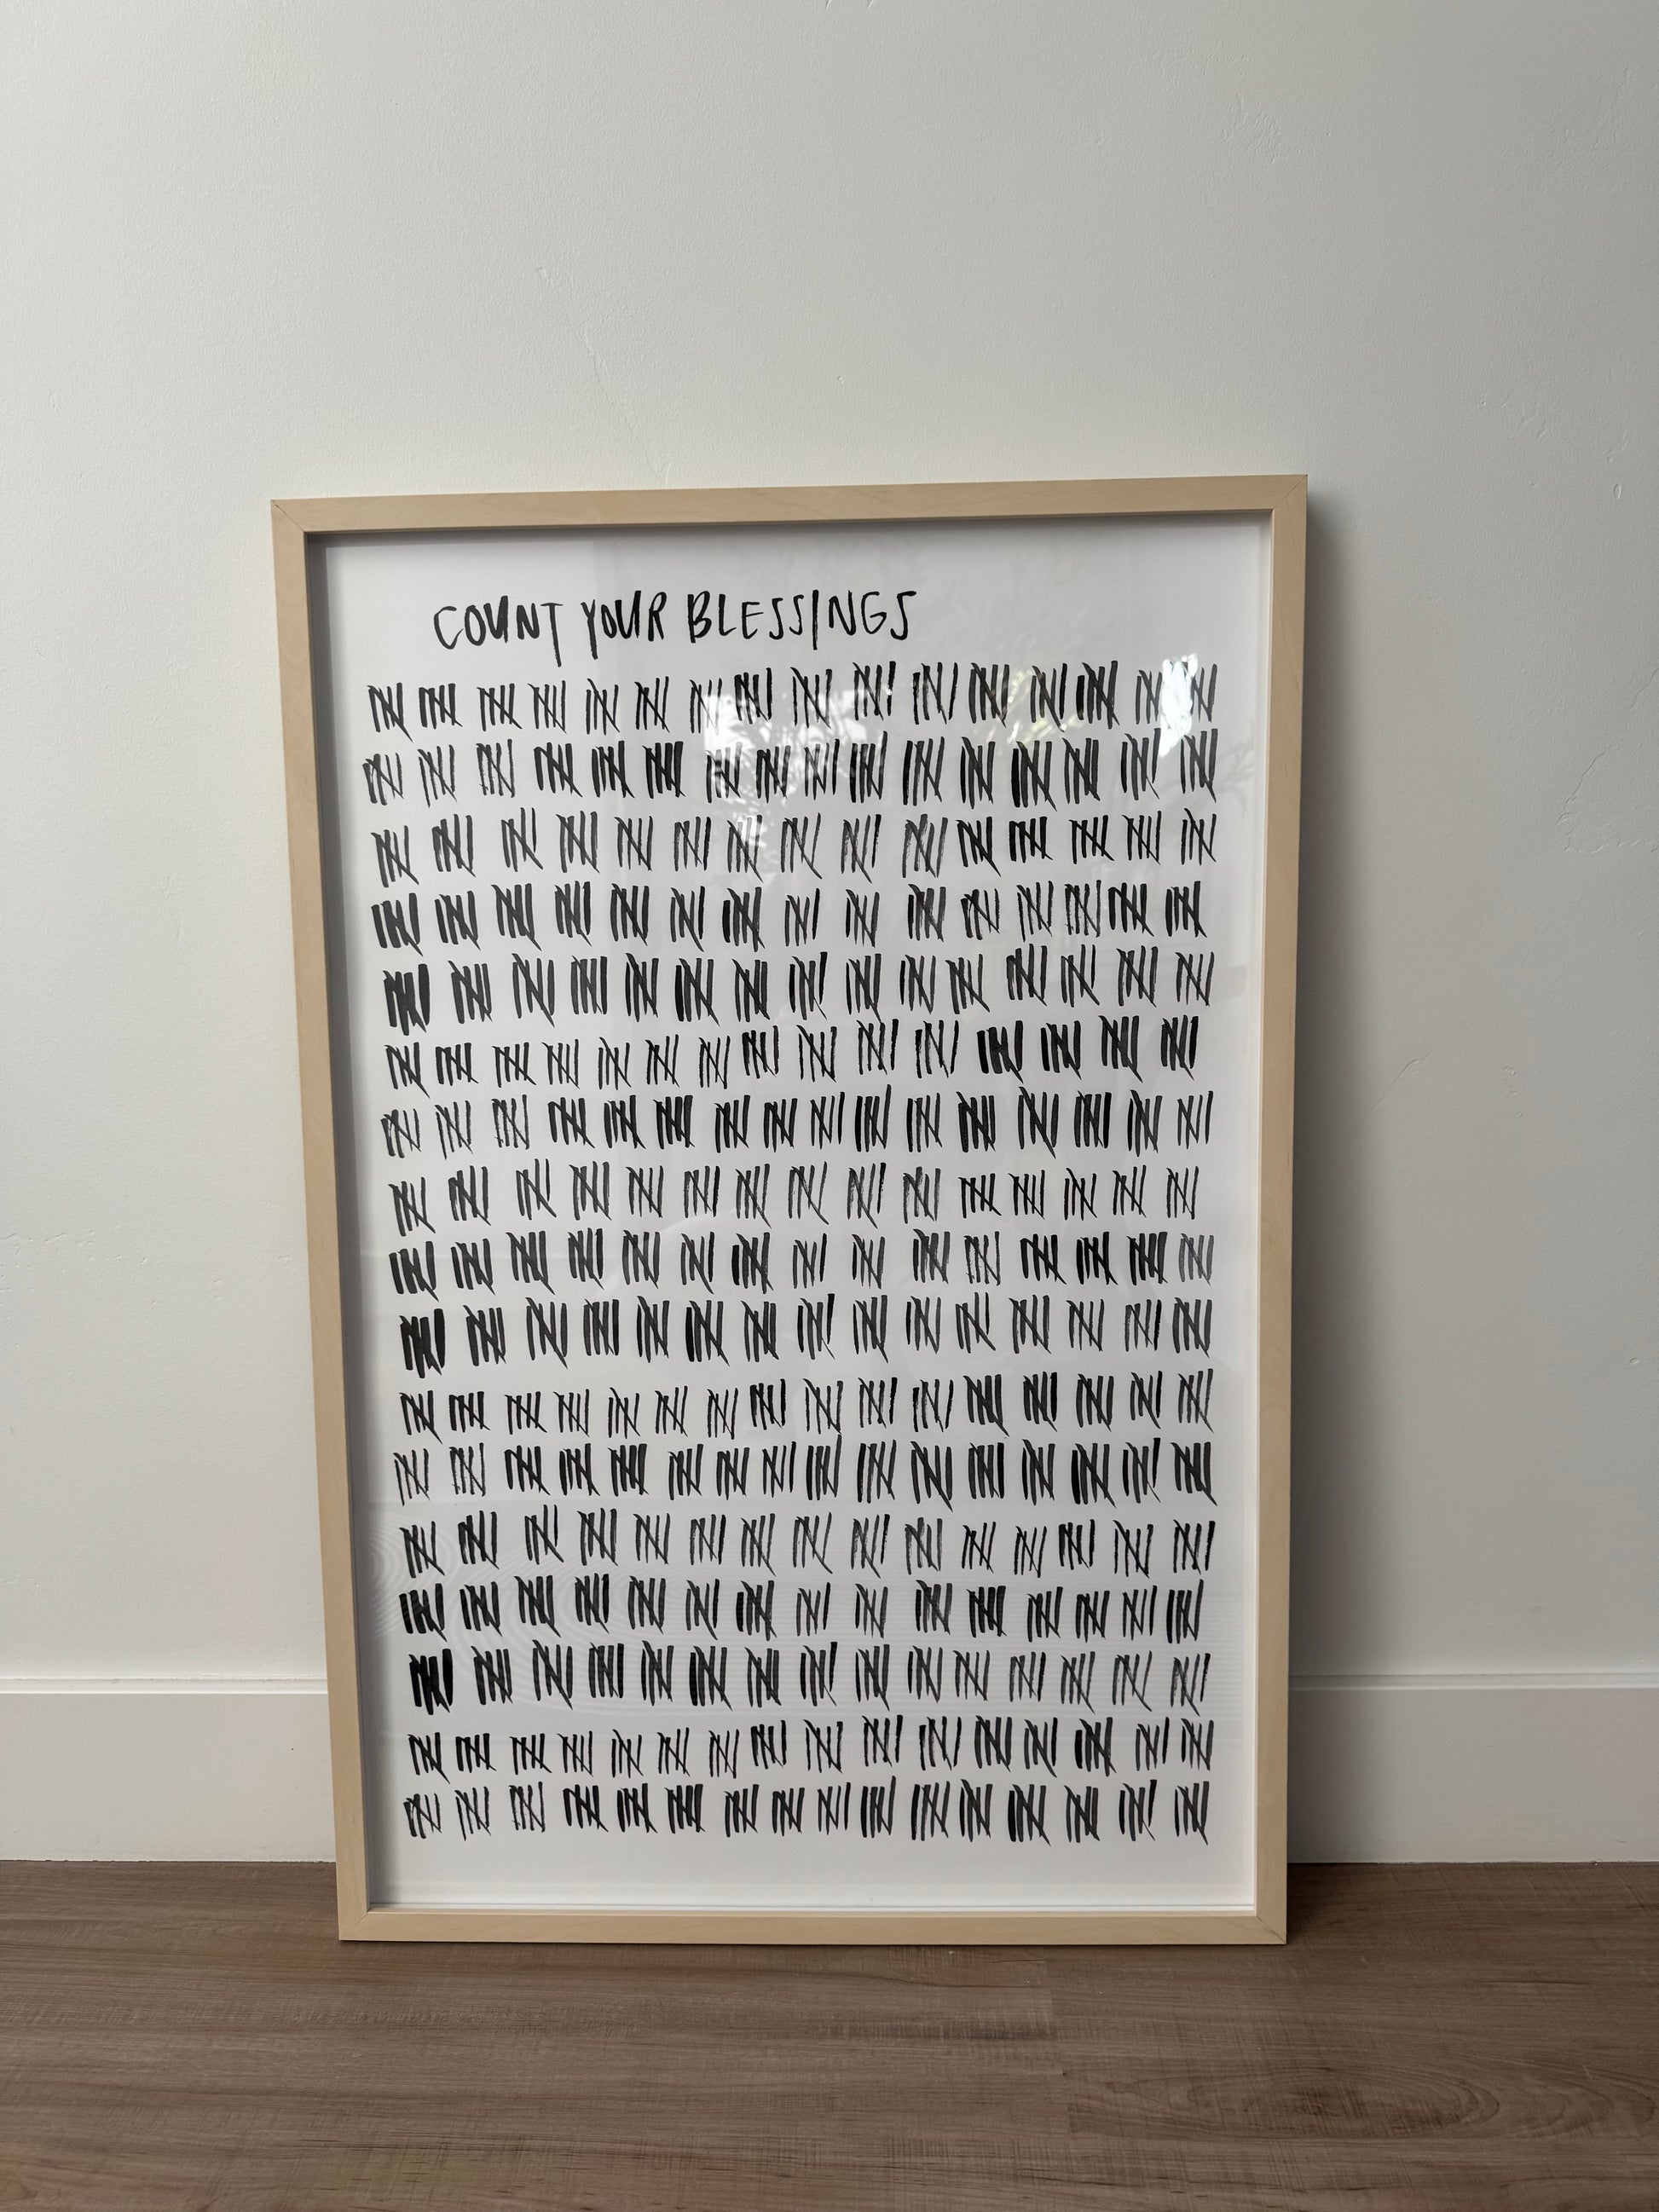 COUNT YOUR BLESSINGS